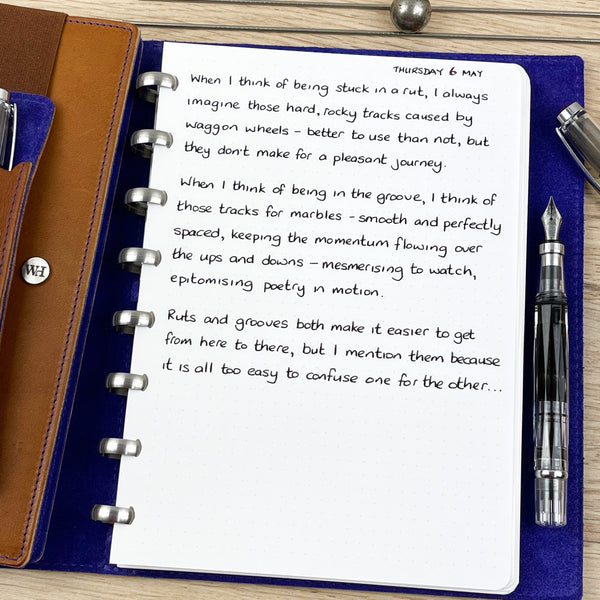 THURSDAY 6 MAY
When I think of being stuck in a rut, I always
imagine those hard, rocky tracks caused by
waggon wheels – better to use than not, but
they don't make for a pleasant journey.
When I think of being in the groove, I think of
those tracks for marbles – smooth and perfectly
spaced, keeping the momentum flowing over
the ups and downs – mesmerising to watch,
epitomising poetry in motion.
Ruts and grooves both make it easier to get
from here to there, but I mention them because
it is all too easy to confuse one for the other...
WH